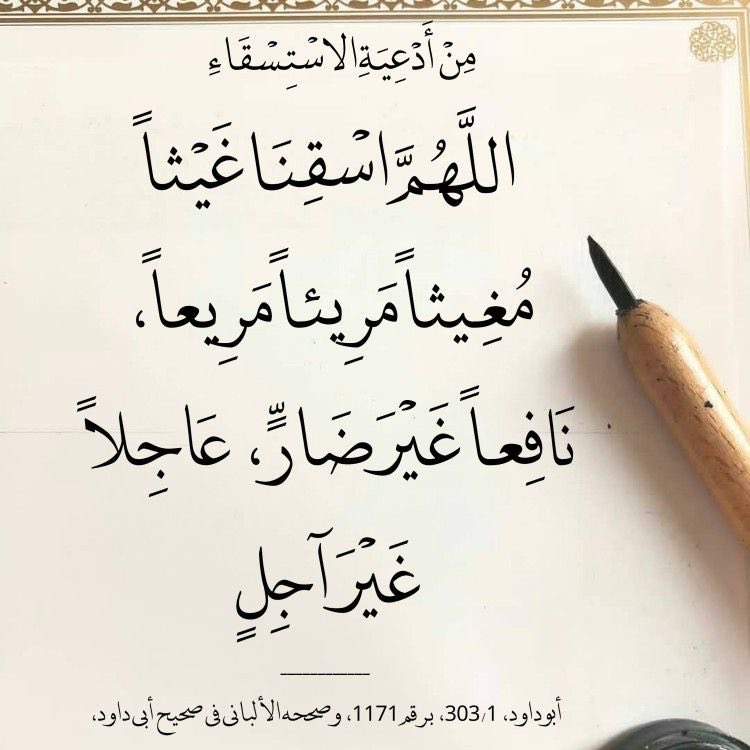 مِنْ أَدْعِيَةِ الاسْتِسْقَاءِ
اللَّهُمَّ اسْقِنَا غَيْثاً
مُغِيثاً مَرِيئاً مَرِيعاً،
نَافِعاً غَيْرَ ضَارٍّ، عَاجِلاً
غَيْرَ آجِلٍ
أبو داود، 303/1، برقم 1171، وصححه الألبانى فى صحيح أبى داود،